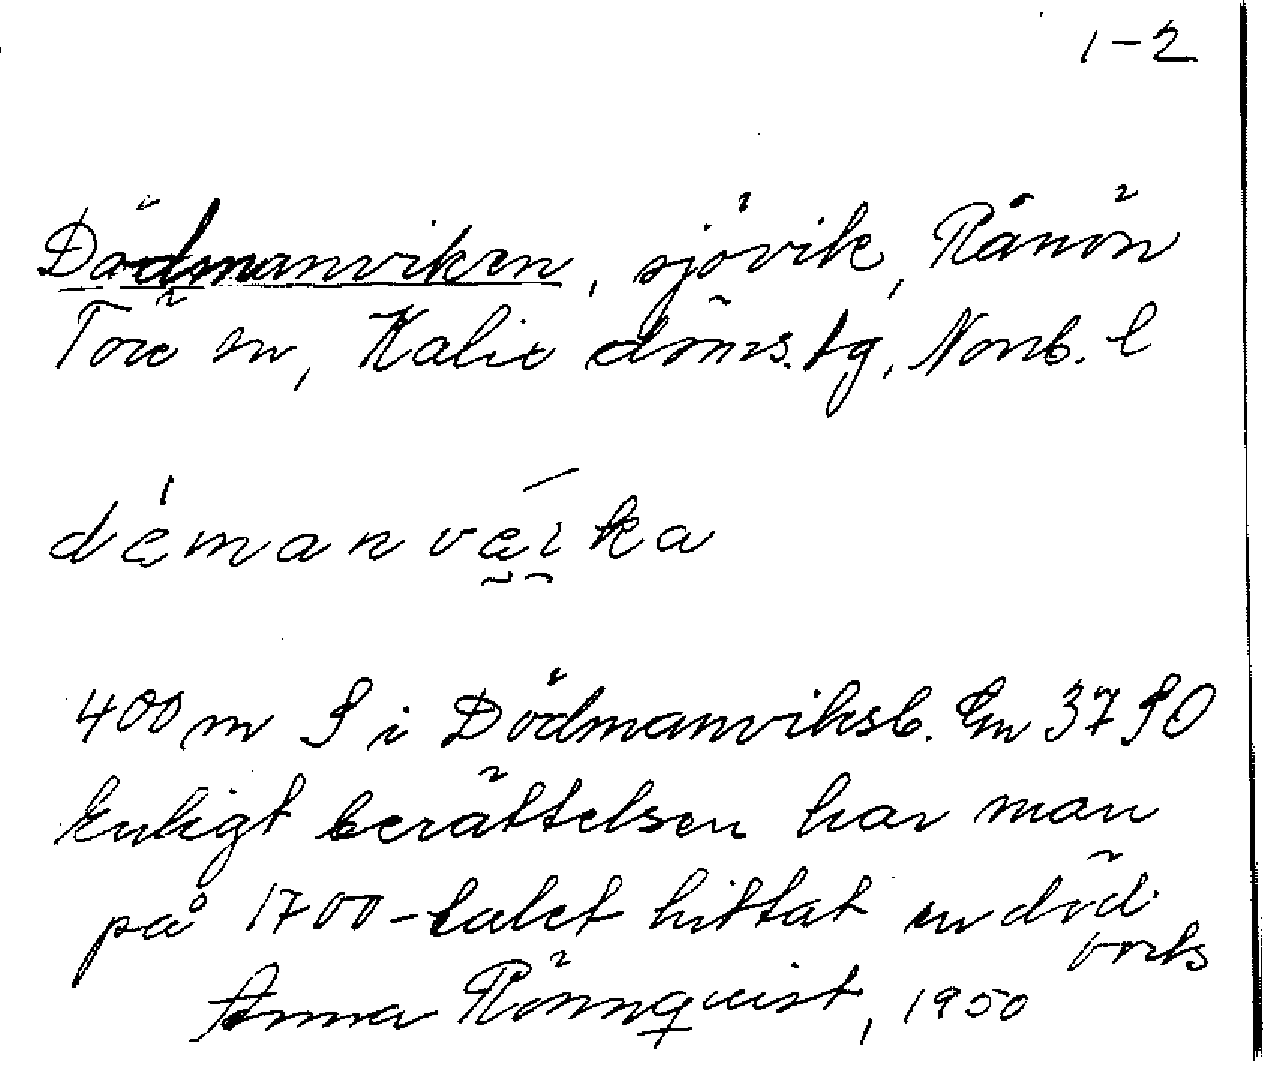 1-2
Dödmanviken, sjövik, Rånön
Töre sn, Kalix doms.tg, Norrb. l
démanvéika
400 m S i Dödmanviksb. En 3790
Enligt berättelsen har man
på 1700-talet hittat en död
Anna Rönnquist, 1950